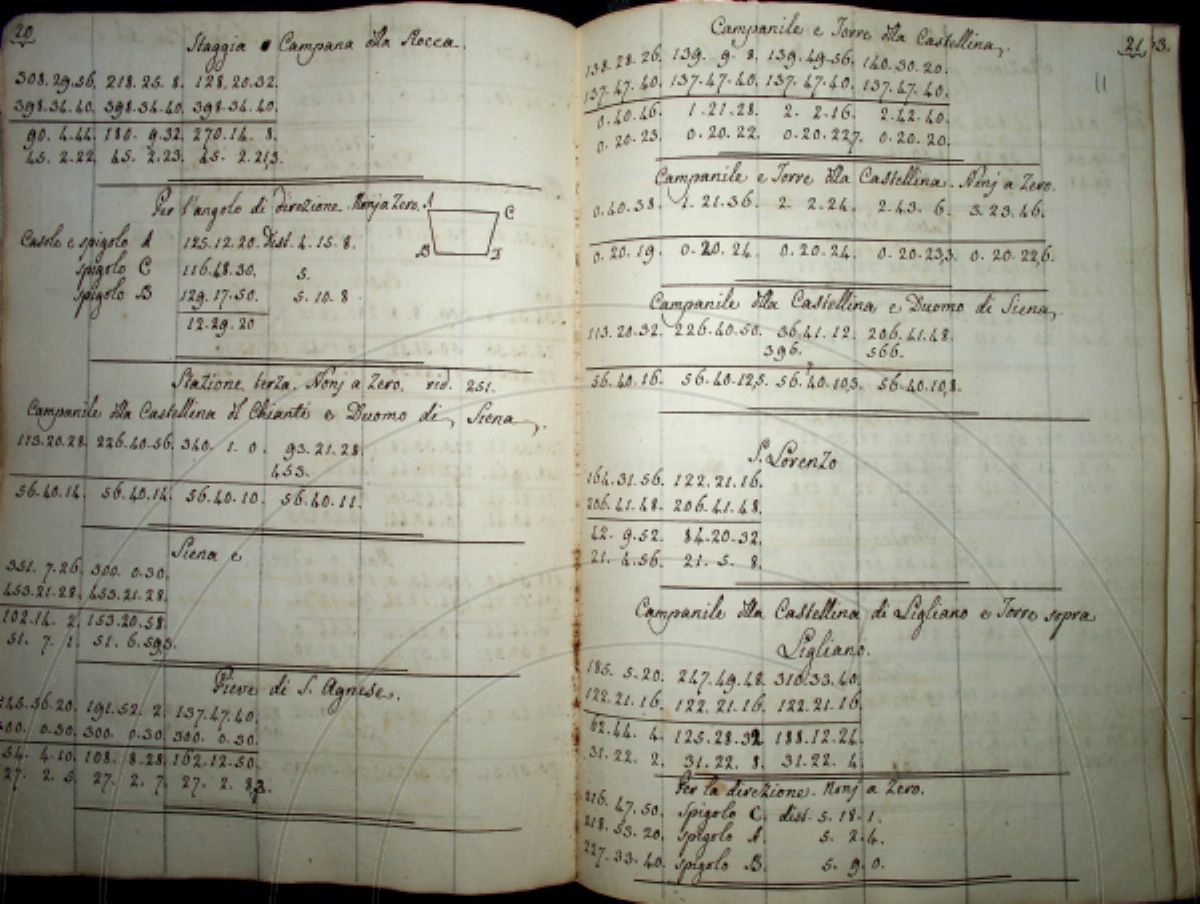 20
Staggia e Campana della Rocca.
308.29.56. 218.25. 8. 128.20.32.
398.34.40. 398.34.40. 398.34.40.
90. 4.44. 180. 9.32. 270.14. 8.
45. 2.22. 45. 2.23. 45. 2.21,3.
Per l'angolo di direzione. Nonj a Zero. A C
B D
Casole e spigolo A 125.12.20. dist. 4. 15. 8.
spigolo C 116.48.30. 5.
spigolo B 129.17.50. 5. 10. 8
12.29.20
Stazione terza. Nonj a Zero. rid. 251.
Campanile della Castellina del Chianti e Duomo di Siena.
113.20.28. 226.40.56. 340. 1. 0. 93.21.28.
453.
56.40.14. 56.40.14. 56.40.10. 56.40.11.
Siena e
351. 7.26. 300. 0.30.
453.21.28. 453.21.28.
102.14. 2. 153.20.58.
51. 7. 1. 51. 6.59,3.
Pieve di S. Agnese.
245.56.20. 191.52. 2. 137.47.40.
300. 0.30. 300. 0.30. 300. 0.30.
54. 4.10. 108. 8.28. 162.12.50.
27. 2. 5. 27. 2. 7. 27. 2. 8,3.
21 3.
Campanile e Torre della Castellina.
138.28.26. 139. 9. 8. 139.49.56. 140.30.20.
137.47.40. 137.47.40. 137.47.40. 137.47.40.
0.40.46. 1.21.28. 2. 2.16. 2.42.40.
0.20.23. 0.20.22. 0.20.22,7. 0.20.20.
Campanile e Torre della Castellina. Nonj a Zero.
0.40.38. 1.21.36. 2. 2.24. 2.43. 6. 3.23.46.
0.20.19. 0.20.24. 0.20.24. 0.20.23,3. 0.20.22,6.
Campanile della Castellina e Duomo di Siena.
113.20.32. 226.40.50. 36.41.12. 206.41.48.
396. 566.
56.40.16. 56.40.12,5. 56.40.10,3. 56.40.10,8.
S. Lorenzo
164.31.56. 122.21.16.
206.41.48. 206.41.48.
42. 9.52. 84.20.32.
21. 4.56. 21. 5. 8.
Campanile della Castellina di Ligliano e Torre sopra
Ligliano.
185. 5.20. 247.49.48. 310.33.40.
122.21.16. 122.21.16. 122.21.16.
62.44. 4. 125.28.32 188.12.24.
31.22. 2. 31.22. 8. 31.22. 4.
Per la direzione. Nonj a Zero.
216. 47. 50. spigolo C. dist. 5. 18. 1.
218. 53. 20. spigolo A. 5. 2. 4.
227. 33. 40. spigolo B. 5. 9. 0.